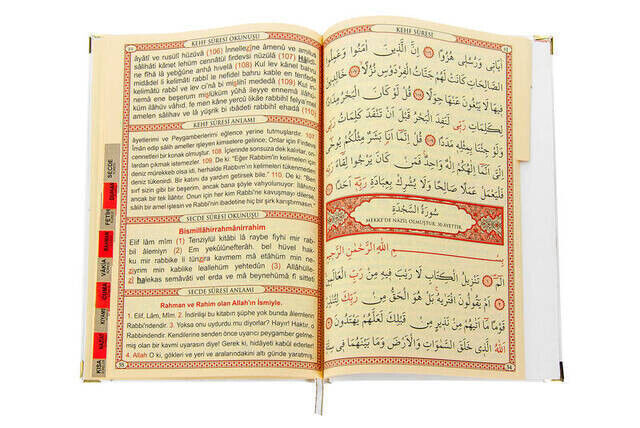 KEHF SÛRESİ
اٰيَاتٖي وَرُسُلٖي هُزُوًا ﴿١٠٦﴾ اِنَّ الَّذٖينَ اٰمَنُوا وَعَمِلُوا
الصَّالِحَاتِ كَانَتْ لَهُمْ جَنَّاتُ الْفِرْدَوْسِ نُزُلًا ﴿١٠٧﴾ خَالِدٖينَ
فٖيهَا لَا يَبْغُونَ عَنْهَا حِوَلًا ﴿١٠٨﴾ قُلْ لَوْ كَانَ الْبَحْرُ مِدَادًا
لِكَلِمَاتِ رَبّٖي لَنَفِدَ الْبَحْرُ قَبْلَ اَنْ تَنْفَدَ كَلِمَاتُ رَبّٖي
وَلَوْ جِئْنَا بِمِثْلِهٖ مَدَدًا ﴿١٠٩﴾ قُلْ اِنَّمَا اَنَا بَشَرٌ مِثْلُكُمْ يُوحٰى
اِلَيَّ اَنَّمَا اِلٰهُكُمْ اِلٰهٌ وَاحِدٌ فَمَنْ كَانَ يَرْجُوا لِقَاءَ رَبِّهٖ
فَلْيَعْمَلْ عَمَلًا صَالِحًا وَلَا يُشْرِكْ بِعِبَادَةِ رَبِّهٖٓ اَحَدًا
سُورَةُ السَّجْدَةِ
MEKKE'DE NAZİL OLMUŞTUR. 30 AYETTİR.
بِسْمِ اللّٰهِ الرَّحْمٰنِ الرَّحٖيمِ
الٓمٓ ﴿١﴾ تَنْزٖيلُ الْكِتَابِ لَا رَيْبَ فٖيهِ مِنْ رَبِّ الْعَالَمٖينَ
اَمْ يَقُولُونَ افْتَرٰيهُ بَلْ هُوَ الْحَقُّ مِنْ رَبِّكَ لِتُنْذِرَ
قَوْمًا مَا اَتٰيهُمْ مِنْ نَذٖيرٍ مِنْ قَبْلِكَ لَعَلَّهُمْ يَهْتَدُونَ
اَللّٰهُ الَّذٖي خَلَقَ السَّمٰوَاتِ وَالْاَرْضَ وَمَا بَيْنَهُمَا فٖي
54
KEHF SÛRESİ OKUNUŞU
âyâtî ve rusulî hüzüvâ (106) İnnellezîne âmenû ve amilus
sâlihâti kânet lehüm cennâtül firdevsi nüzülâ (107) Hâlidî
ne fîhâ lâ yebğûne anhâ hıvelâ (108) Kul lev kânel bahru
midâdel li kelimâti rabbî le nefidel bahru kable en tenfede
kelimâtü rabbî ve lev ci'nâ bi mislihî mededâ (109) Kul in
nemâ ene beşerum mislüküm yûhâ ileyye ennemâ ilâhü
küm ilâhüv vâhıd, fe men kâne yercû likâe rabbihî felya'mel
amelen sâlihav ve lâ yüşrik bi ıbâdeti rabbihî ehadâ
KEHF SÛRESİ ANLAMI
âyetlerimi ve Peygamberlerimi eğlence yerine tutmuşlardır. 107.
İman edip salih ameller işleyen kimselere gelince: Onlar için Firdevs
cennetleri bir konak olmuştur. 108. İçlerinde sonsuza dek kalırlar, on-
lardan çıkmak istemezler. 109. De ki: "Eğer Rabbimin kelimeleri için
deniz mürekkep olsa idi, herhalde Rabbimin kelimeleri tükenmeden
deniz tükenirdi. Bir katını da yardım getirsek bile." 110. De ki: "Ben
sırf sizin gibi bir beşerim, ancak bana şöyle vahyolunuyor: İlâhınız
ancak bir tek ilâhtır. Onun için her kim Rabbine kavuşmayı dilerse
SECDE SÛRESİ OKUNUŞU
Bismillâhirrahmânirrahîm
Elif lâm mîm (1) Tenzîylül kitâbi lâ raybe fiyhi mir rab-
bil âlemiyn (2) Em yekûlûnefterâh, bel hüvel hak-
ku mir rabbike li tünzira kavmem mâ etâhüm min ne-
ziyrim min kablike leallehüm yehtedûn (3) Allâhülle-
zî halekas semâvâti vel erda ve mâ beynehümâ fî sitteti
SECDE SÛRESİ ANLAMI
Rahman ve Rahim olan Allah'ın İsmiyle.
1. Elif, Lâm, Mîm. 2. İndirilişi bu kitabın şüphe yok bunda âlemlerin
Rabb'indendir. 3. Yoksa onu uydurdu mu diyorlar? Hayır! Haktır, o
Rabbindendir. Kendilerine senden önce uyarıcı peygamber gelme-
miş olan bir kavmi uyarasın diye! Gerek ki, hidâyeti kabûl ederler!
4. Allah O ki, gökleri ve yeri ve aralarındakini altı günde yaratmış,
55
SECDE
DUHAN
FETİH
RAHMAN
VAKIA
CUMA
KIYAME
KISA